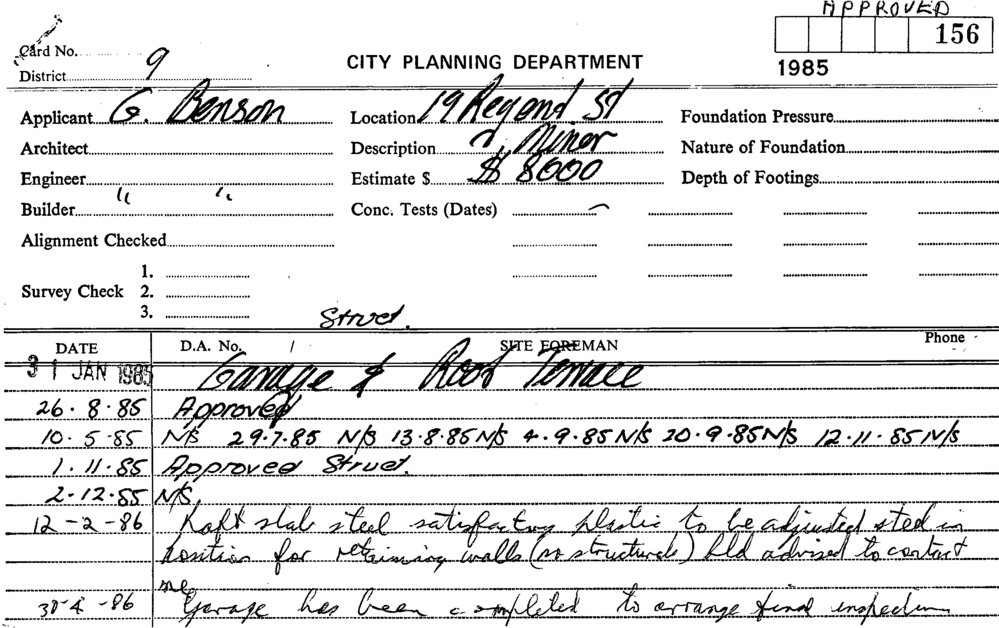 APPROVED
156
1985
Card No.
District 9
CITY PLANNING DEPARTMENT
Applicant G. Benson
Location 19 Regond St
Foundation Pressure
Architect
Description Minor
Nature of Foundation
Engineer
Estimate $ $ 8000
Depth of Footings
Builder " "
Conc. Tests (Dates)
Alignment Checked
Survey Check 1.
2.
3.
Struct.
DATE D.A. No. SITE FOREMAN Phone
31 JAN 1985 Garage & Roof Terrace
26.8.85 Approved
10.5.85 N/S 29.7.85 N/S 13.8.85 N/S 4.9.85 N/S 20.9.85 N/S 12.11.85 N/S
1.11.85 Approved Struct.
2.12.85 N/S.
12-2-86 Raft slab steel satisfactory plastic to be adjusted steel in
position for retaining walls (no structurals) bld advised to contact
me
30-4-86 Garage has been completed to arrange final inspection